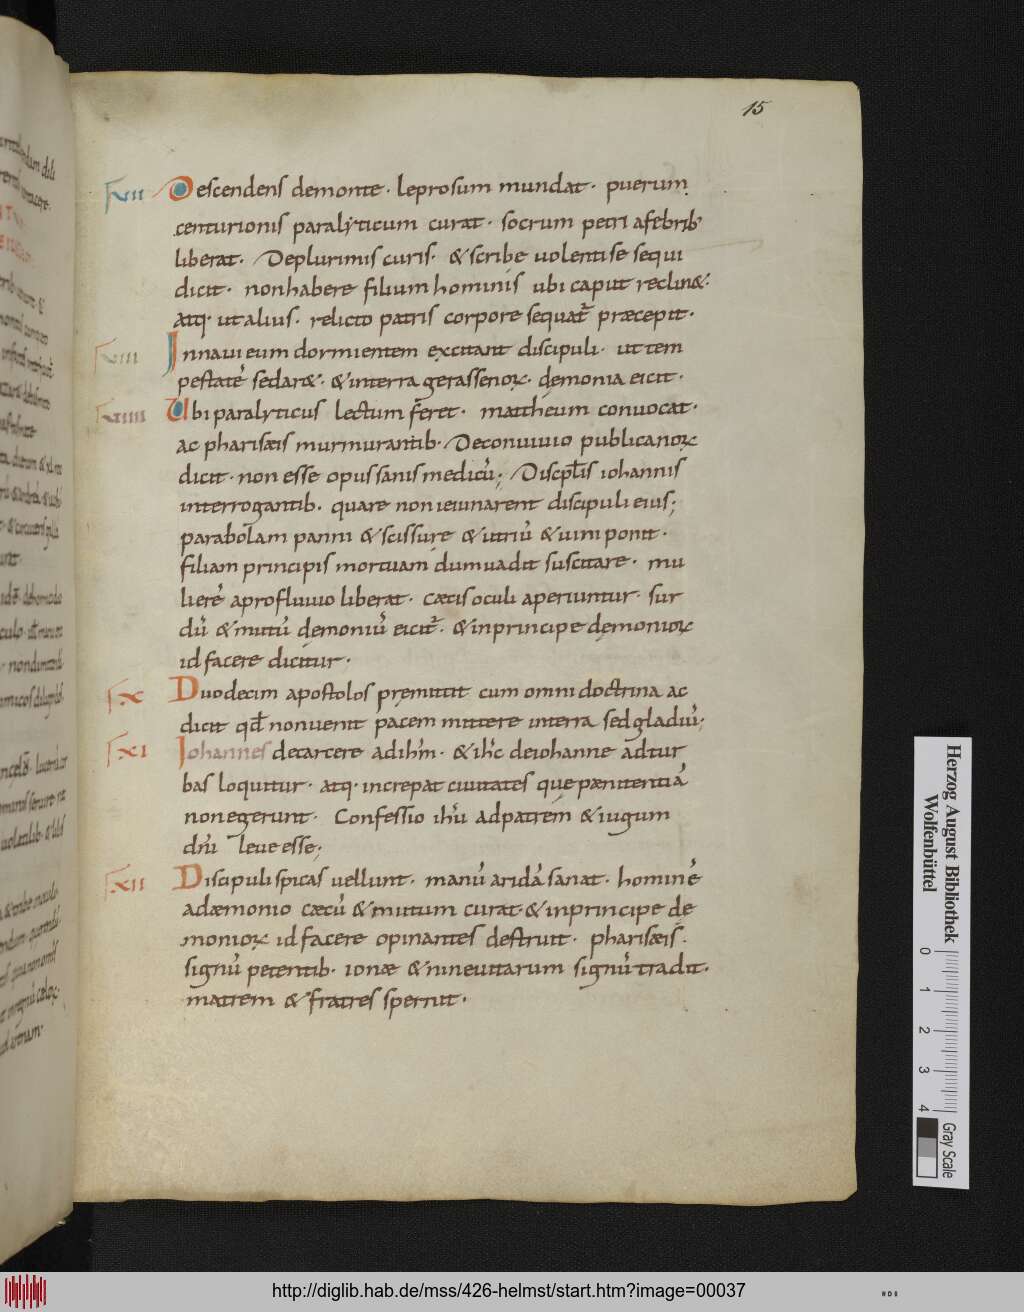 15
VII Descendens demonte · leprosum mundat · puerum
centurionis paralyticum curat · socrum petri afebrib
liberat · Deplurimis curis · & scribe uolentise sequi
dicit · nonhabere filium hominis ubi caput reclin& ·
atq · utalius · relicto patris corpore sequat̄ præcepit ·
VIII Innaui eum dormientem excitant discipuli · uttem
pestatē sedar& · & interra gerassenoꝝ · dęmonia eicit ·
VIIII Ubi paralyticus lectum ferret · mattheum conuocat ·
ac pharisæis murmurantib · Deconuiuio publicanoꝝ
dicit · non esse opus sanis medicū ; Discipl̄is iohannis
interrogantib · quare non ieiunarent discipuli eius ;
parabolam panni & scissurę & utriū & uini ponit ·
filiam principis mortuam dum uadit suscitare · mu
lierē aprofluuio liberat · cæcis oculi aperiuntur · sur
dū & mutū dęmoniū eicit̄ · & inprincipe dęmonioꝝ
id facere dicitur ·
X Duodecim apostolos pręmittit cum omni doctrina ac
dicit qd̄ nonuenit pacem mittere interra sed gladiū ;
XI Iohannes decarcere ad ihm̄ · & ihc̄ deiohanne adtur
bas loquitur · atq · increpat ciuitates que pænitentiā
nonegerunt · Confessio ihū adpatrem & iugum
dn̄i leue esse ;
XII Discipuli spicas uellunt · manū aridā sanat · hominē
adæmonio cæcū & mutum curat & inprincipe de
monioꝝ id facere opinantes destruit · pharisæis ·
signū petentib · ionæ & nineuitarum signū tradit ·
matrem & fratres spernit ·
Herzog August Bibliothek
Wolfenbüttel
0 1 2 3 4
Gray Scale
http://diglib.hab.de/mss/426-helmst/start.htm?image=00037